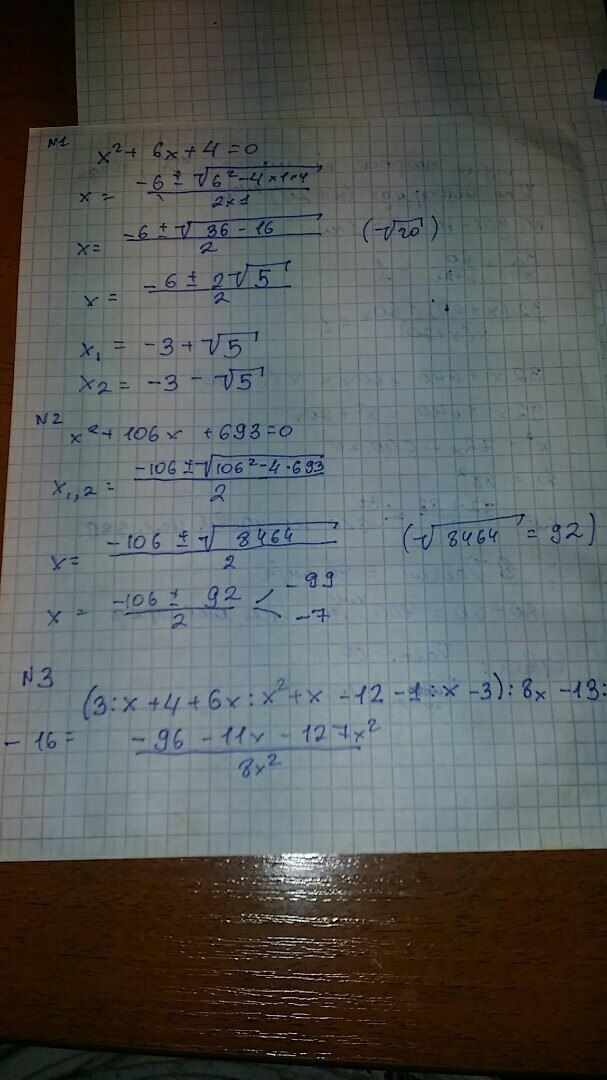 №1
x² + 6x + 4 = 0
x = (-6 ± √(6² - 4×1×4)) / (2×1)
x = (-6 ± √(36 - 16)) / 2 (√20)
x = (-6 ± 2√5) / 2
x₁ = -3 + √5
x₂ = -3 - √5
№2
x² + 106x + 693 = 0
x₁,₂ = (-106 ± √(106² - 4·693)) / 2
x = (-106 ± √8464) / 2 (√8464 = 92)
x = (-106 ± 92) / 2 < -99 -7
№3
(3:x + 4 + 6x : x² + x - 12 - 1 : x - 3) : 8x - 13 :
- 16 = (-96 - 11x - 127x²) / 8x²